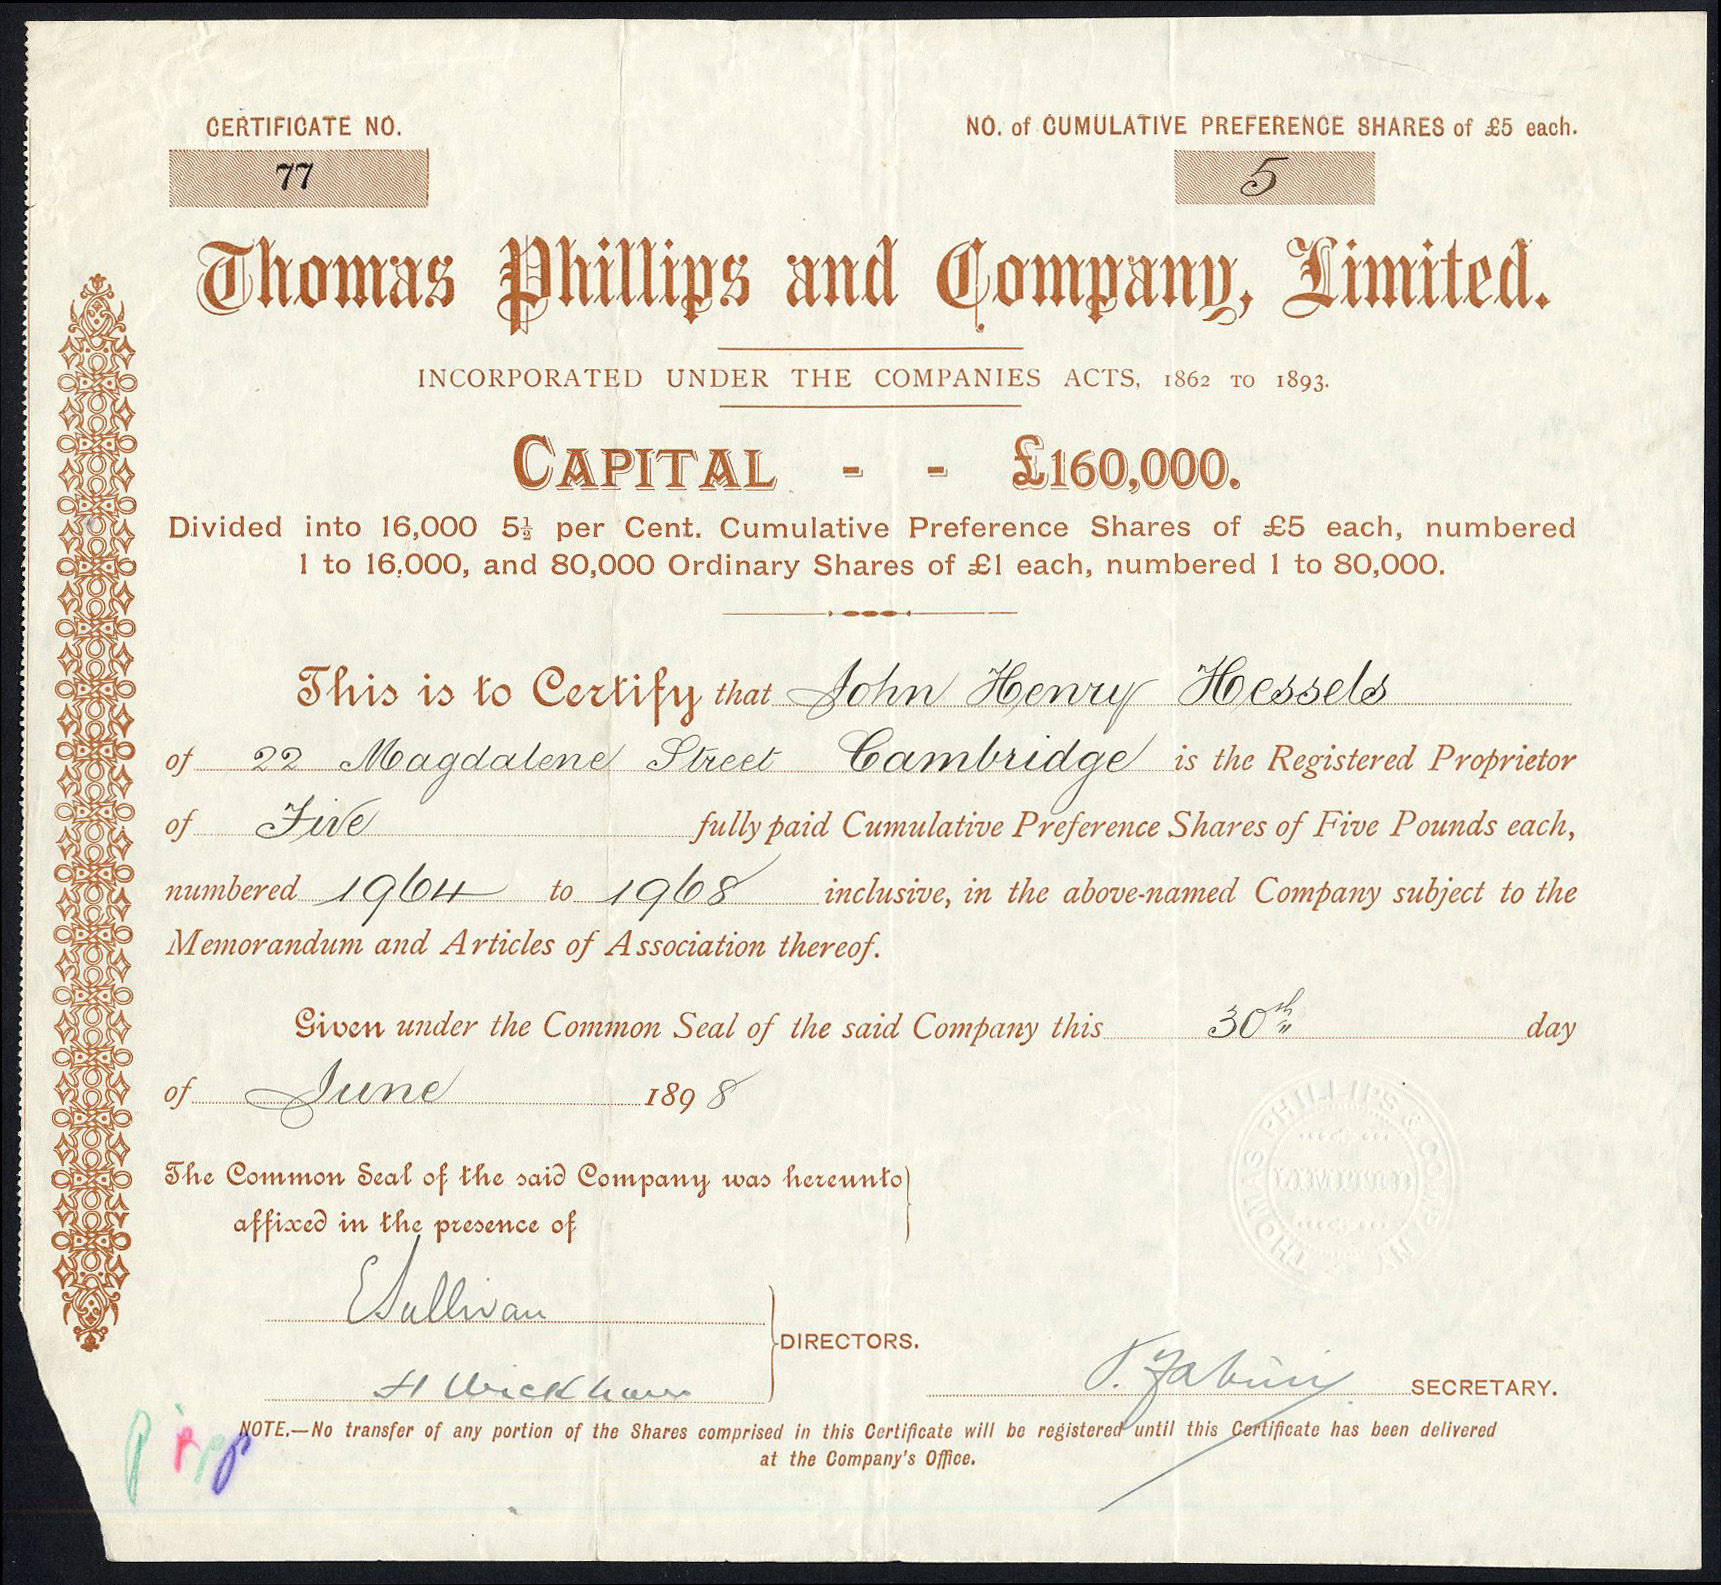 CERTIFICATE NO.
77
NO. of CUMULATIVE PREFERENCE SHARES of £5 each.
5
Thomas Phillips and Company, Limited.
INCORPORATED UNDER THE COMPANIES ACTS, 1862 TO 1893.
CAPITAL - - £160,000.
Divided into 16,000 5½ per Cent. Cumulative Preference Shares of £5 each, numbered
1 to 16,000, and 80,000 Ordinary Shares of £1 each, numbered 1 to 80,000.
This is to Certify that John Henry Hessels
of 22 Magdalene Street Cambridge is the Registered Proprietor
of Five fully paid Cumulative Preference Shares of Five Pounds each,
numbered 1964 to 1968 inclusive, in the above-named Company subject to the
Memorandum and Articles of Association thereof.
Given under the Common Seal of the said Company this 30th day
of June 1898
THOMAS PHILLIPS & COMPANY
LIMITED
The Common Seal of the said Company was hereunto
affixed in the presence of
E Sullivan
H Wickham
DIRECTORS.
SECRETARY.
NOTE.—No transfer of any portion of the Shares comprised in this Certificate will be registered until this Certificate has been delivered
at the Company's Office.